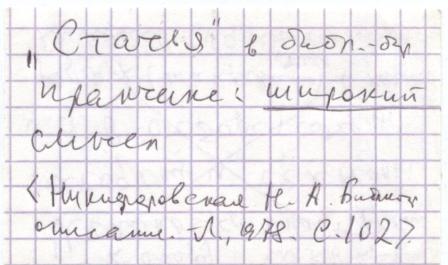 „Статья“ в библ.-ой
практике: широкий
смысл
<Никифоровская Н. А. Библиогр
описание. Л., 1978. С. 102>.